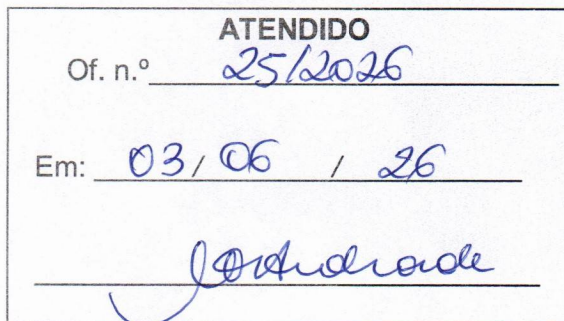 ATENDIDO
Of. n.º 25/2026
Em: 03/06/26